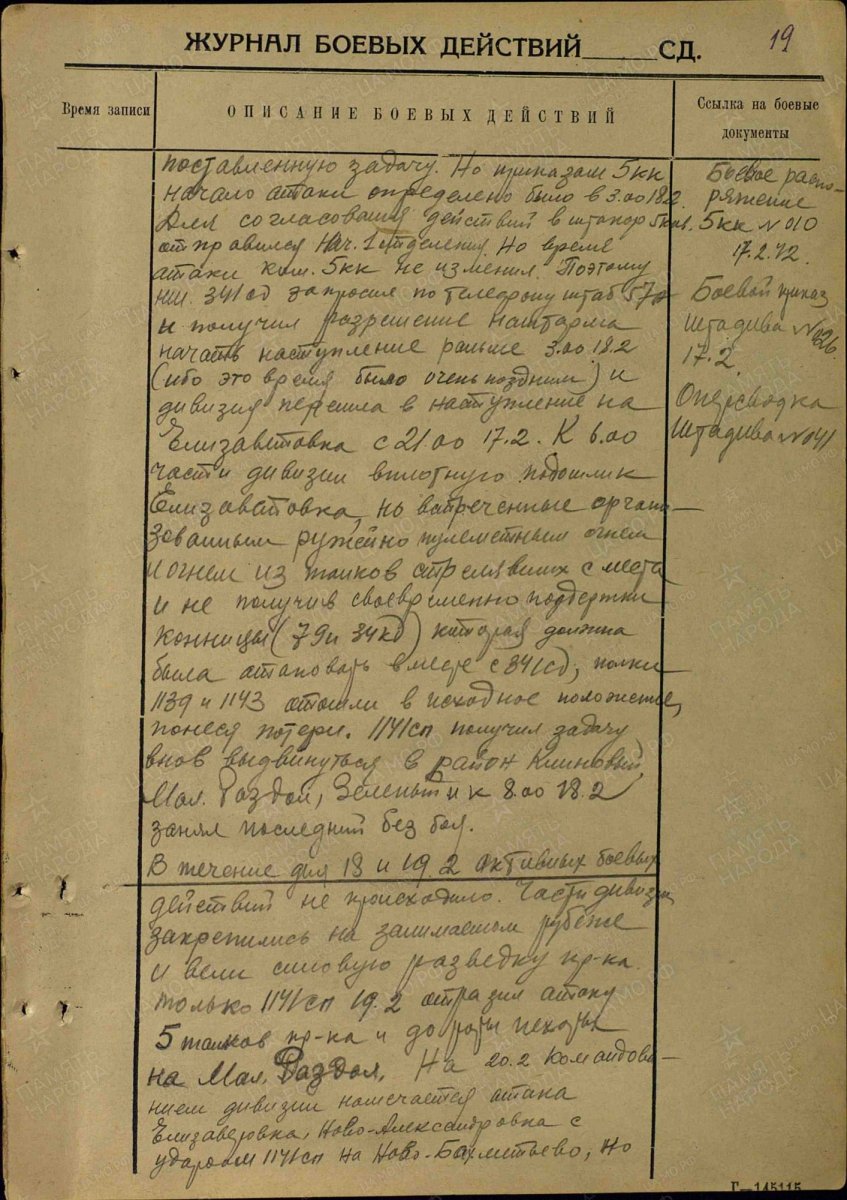 19
ЖУРНАЛ БОЕВЫХ ДЕЙСТВИЙ СД.
Время записи
ОПИСАНИЕ БОЕВЫХ ДЕЙСТВИЙ
Ссылка на боевые
документы
поставленную задачу. Но приказом 5кк
начало атаки определено было в 3.00 18.2
Для согласования действий в штакор 5кав.
отправился Нач. 1 отделения. Но время
атаки ком. 5кк не изменил. Поэтому
341сд запросил по телефону штаб 57а
и получил разрешение наштарма
начать наступление раньше 3.00 18.2
(ибо это время было очень поздним) и
дивизия перешла в наступление на
Елизаветовка с 21.00 17.2. К 6.00
части дивизии вплотную подошли к
Елизаветовка, но встреченные органи-
зованным ружейно пулеметным огнем
и огнем из танков стрелявших с места
и не получив своевременно поддержки
конницы (79 и 34кд) которая должна
была атаковать вместе с 341сд, полки
1139 и 1143 отошли в исходное положение,
понеся потери. 1141сп получил задачу
внов выдвинуться в район Клиновый,
Мал. Раздол, Зеленый и к 8.00 18.2
занял последний без боя.
В течение дня 18 и 19.2 активных боевых
действий не происходило. Части дивизии
закрепились на занимаемом рубеже
и вели силовую разведку пр-ка.
только 1141сп 19.2 отразил атаку
5 танков пр-ка и до роты пехоты
на Мал. Раздол. На 20.2 командова-
нием дивизии намечается атака
Елизаветовка, Ново-Александровка с
ударом 1141сп на Ново-Бахметьево, но
Боевое распо-
ряжение
5кк №010
17.2.42.
Боевой приказ
Штадива №026
17.2.
Оперсводка
Штадива №041
Г—145115